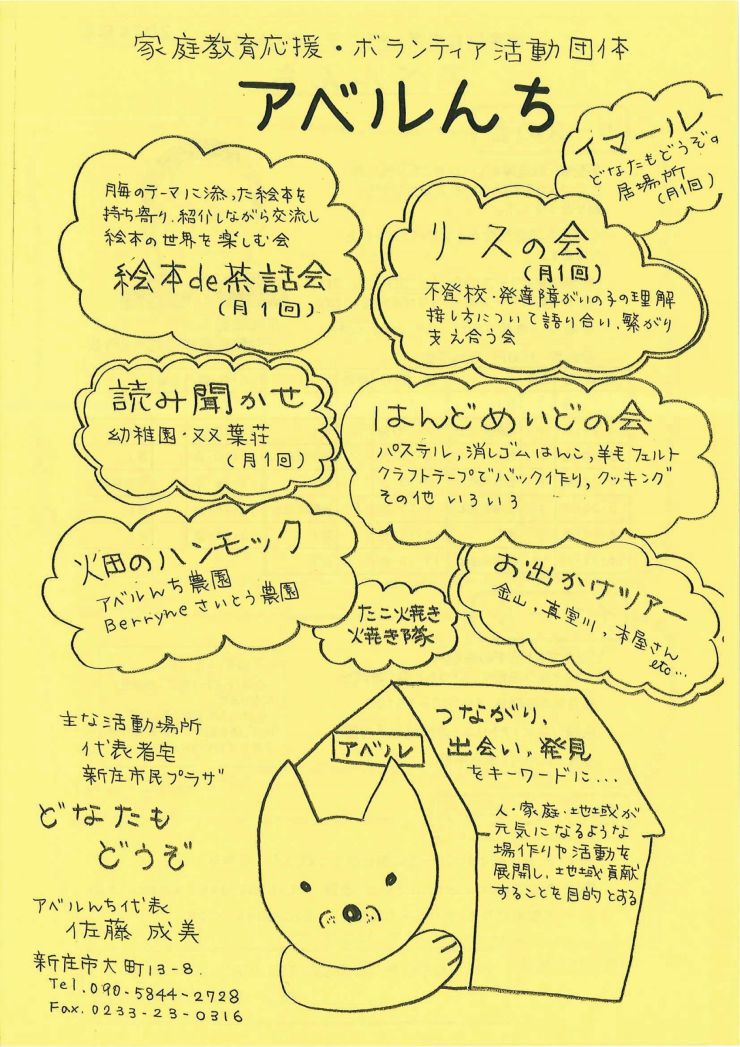 家庭教育応援・ボランティア活動団体
アベルんち
イマール
どなたもどうぞ。
居場所
(月1回)
毎月のテーマに添った絵本を
持ち寄り、紹介しながら交流し
絵本の世界を楽しむ会
絵本de茶話会
(月1回)
リースの会
(月1回)
不登校・発達障がいの子の理解
接し方について語り合い、繋がり
支え合う会
読み聞かせ
幼稚園・双葉荘
(月1回)
はんどめいどの会
パステル,消しゴムはんこ,羊毛フェルト
クラフトテープでバック作り,クッキング
その他いろいろ
畑のハンモック
アベルんち農園
Berryneさいとう農園
たこ焼き
焼き隊
お出かけツアー
金山,真室川,本屋さん
etc...
主な活動場所
代表者宅
新庄市民プラザ
どなたも
どうぞ
アベルんち代表
佐藤 成美
新庄市大町13-8.
Tel.090-5844-2728
Fax.0233-23-0316
アベル
つながり,
出会い,発見
をキーワードに...
人・家庭・地域が
元気になるような
場作りや活動を
展開し、地域貢献
することを目的とする